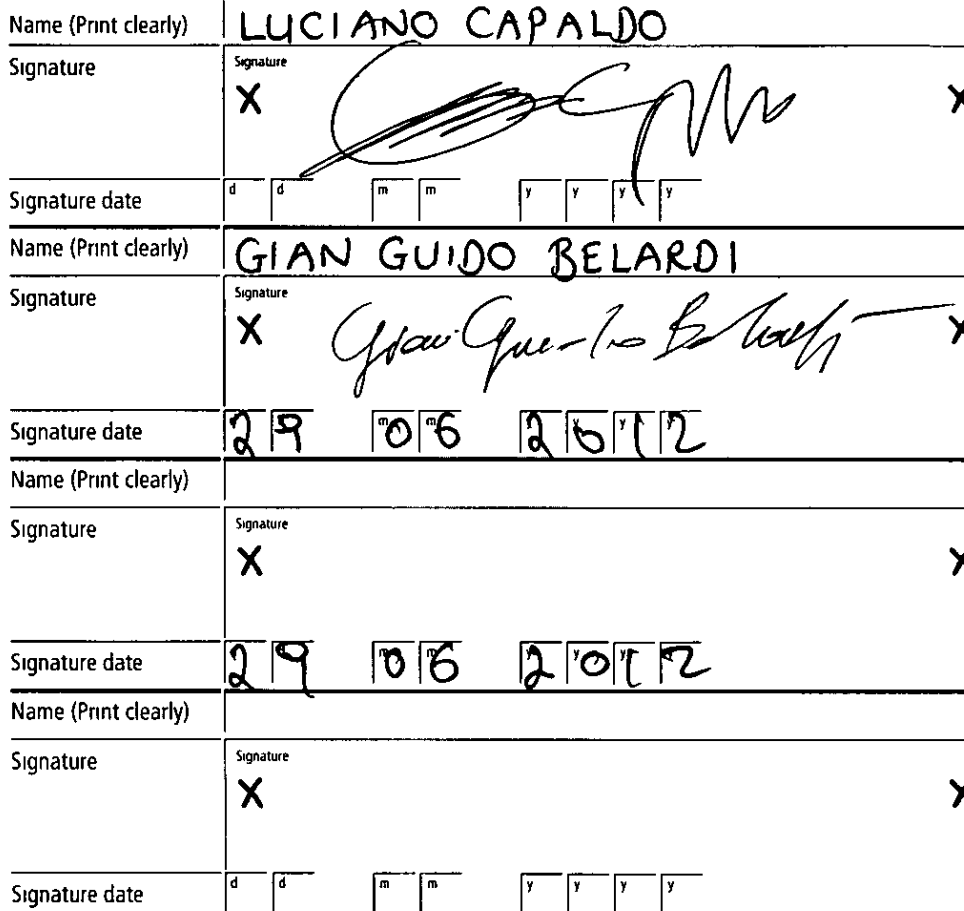 Name (Print clearly) LUCIANO CAPALDO
Signature Signature
X X
Signature date d d m m y y y y
Name (Print clearly) GIAN GUIDO BELARDI
Signature Signature
X Gian Guido Belardi X
Signature date 29 06 2012
Name (Print clearly)
Signature Signature
X X
Signature date 29 06 2012
Name (Print clearly)
Signature Signature
X X
Signature date d d m m y y y y